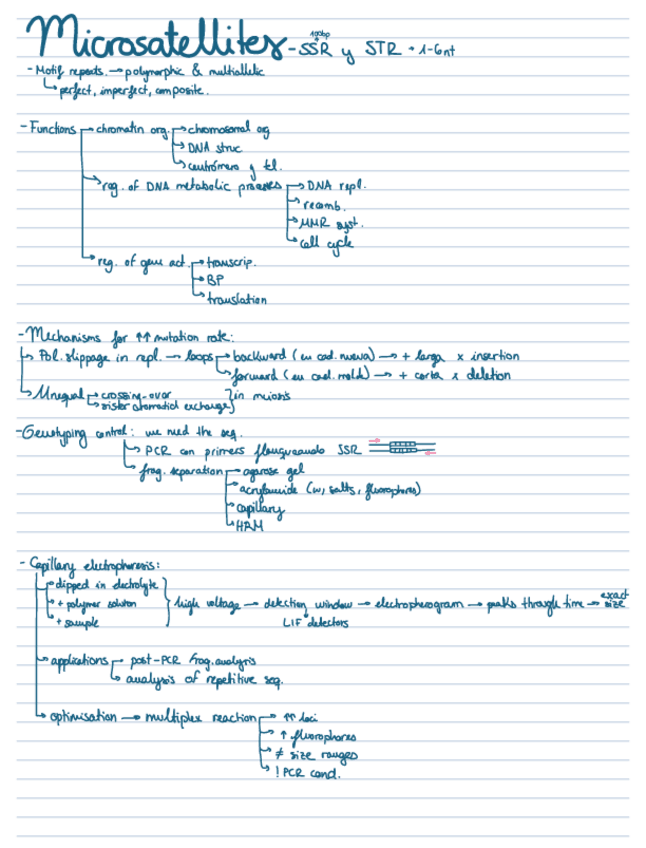 Microsatellites - SSR y STR • 1-6nt
100bp
- Motif repeats. → polymorphic & multiallelic
↳ perfect, imperfect, composite.
- Functions → chromatin org. → chromosomal org
→ DNA struc
→ centrómero y tel.
→ reg. of DNA metabolic processes → DNA repl.
→ recomb.
→ MMR syst.
→ cell cycle
→ reg. of gene act. → transcrip.
→ BP
→ translation
- Mechanisms for ↑↑ mutation rate:
→ Pol. slippage in repl. → loops → backward (en cad. nueva) → + larga x insertion
→ forward (en cad. molde) → + corta x deletion
→ Unequal → crossing-over
→ sister chromatid exchange } in meiosis
- Genotyping control: we need the seq.
→ PCR con primers flanqueando SSR
→ frag. separation → agarose gel
→ acrylamide (w, salts, fluorophores)
→ capillary
→ HRM
- Capillary electrophoresis:
→ dipped in electrolyte
→ + polymer solution } high voltage → detection window → electropherogram → peaks through time → exact size
→ + sample
LIF detectors
→ applications → post-PCR frag. analysis
→ analysis of repetitive seq.
→ optimisation → multiplex reaction → ↑↑ loci
→ ↑ fluorophores
→ ≠ size ranges
→ ! PCR cond.